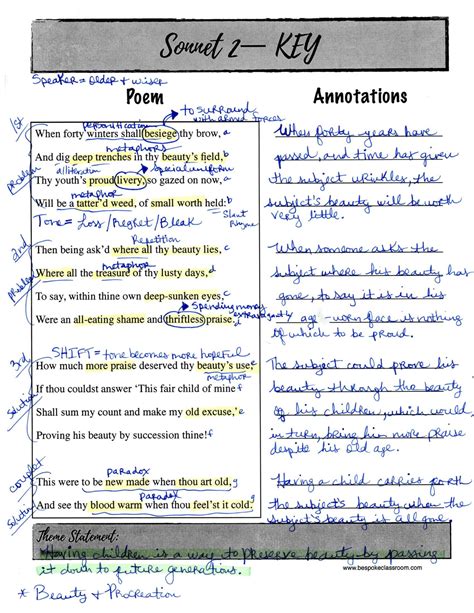 Sonnet 2— KEY
Speaker = older & wiser
Poem
Annotations
→ to surround
with armed forces
personification
1st
problem
When forty winters shall besiege thy brow, a
metaphor
And dig deep trenches in thy beauty's field, b
alliteration
special uniform
Thy youth's proud livery, so gazed on now, a
Will be a tatter'd weed, of small worth held: b
Tone = Loss/Regret/Bleak
Slant
Rhyme
When forty years have
passed, and time has given
the subject wrinkles, the
subject's beauty will be worth
very little.
2nd
problem
Repetition
Then being ask'd where all thy beauty lies, c
metaphor
Where all the treasure of thy lusty days, d
To say, within thine own deep-sunken eyes, c
spending money
extravagantly
Were an all-eating shame and thriftless praise. d
When someone asks the
subject where his beauty has
gone, to say it is in his
age-worn face is nothing
of which to be proud.
3rd
solution
SHIFT = tone becomes more hopeful
How much more praise deserved thy beauty's use, e
metaphor
If thou couldst answer 'This fair child of mine f
Shall sum my count and make my old excuse,' e
Proving his beauty by succession thine! f
The subject could prove his
beauty through the beauty
of his children, which would
in turn, bring him more praise
despite his old age.
couplet
solution
paradox
This were to be new made when thou art old, g
paradox
And see thy blood warm when thou feel'st it cold. g
Having a child carries forth
the subject's beauty when the
subject's beauty is all gone.
Theme Statement:
Having children is a way to preserve beauty by passing
it down to future generations.
www.bespokeclassroom.com
* Beauty & Procreation